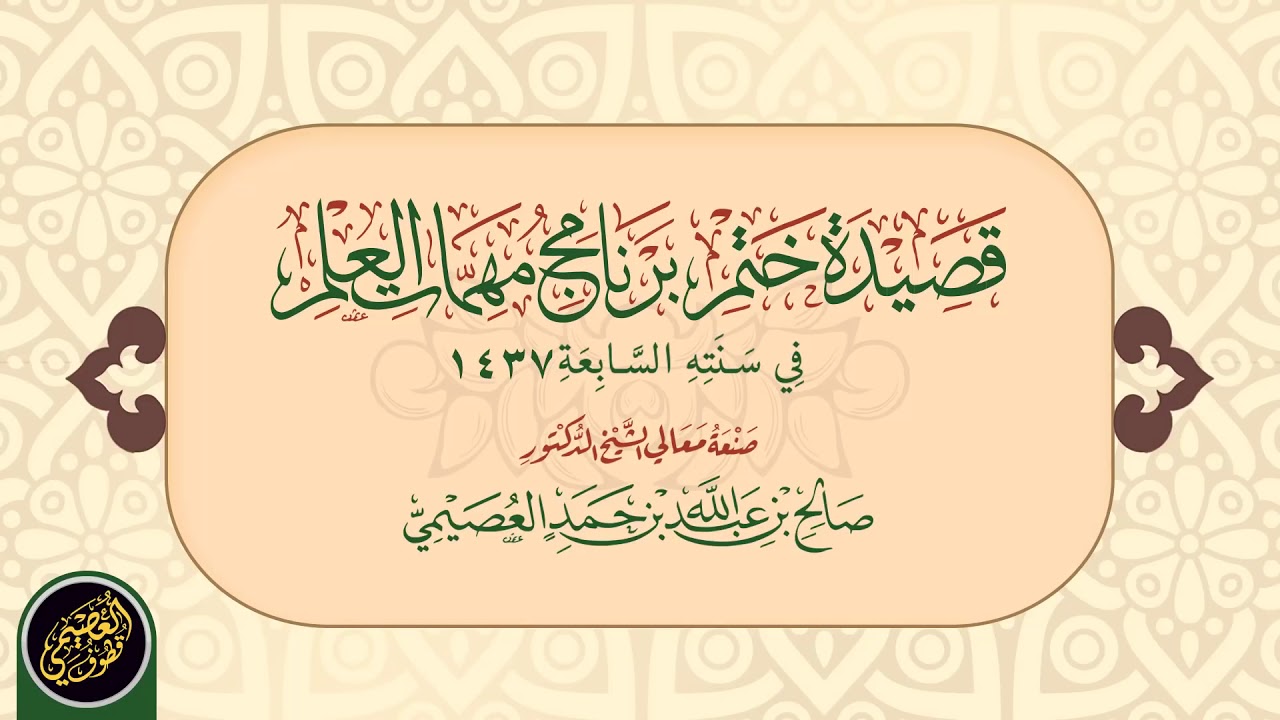 قَصِيْدَةُ خَتْمِ بَرْنَامَجِ مُهِمَّاتِ العِلْمِ
فِي سَنَتِهِ السَّابِعَةِ ١٤٣٧
صَنْعَةُ مَعَالِي الشَّيْخِ الدُّكْتُورِ
صَالِحِ بْنِ عَبْدِ اللَّهِ بْنِ حَمَدٍ العُصَيْمِيِّ
قُطُوفُ العُصَيْمِي